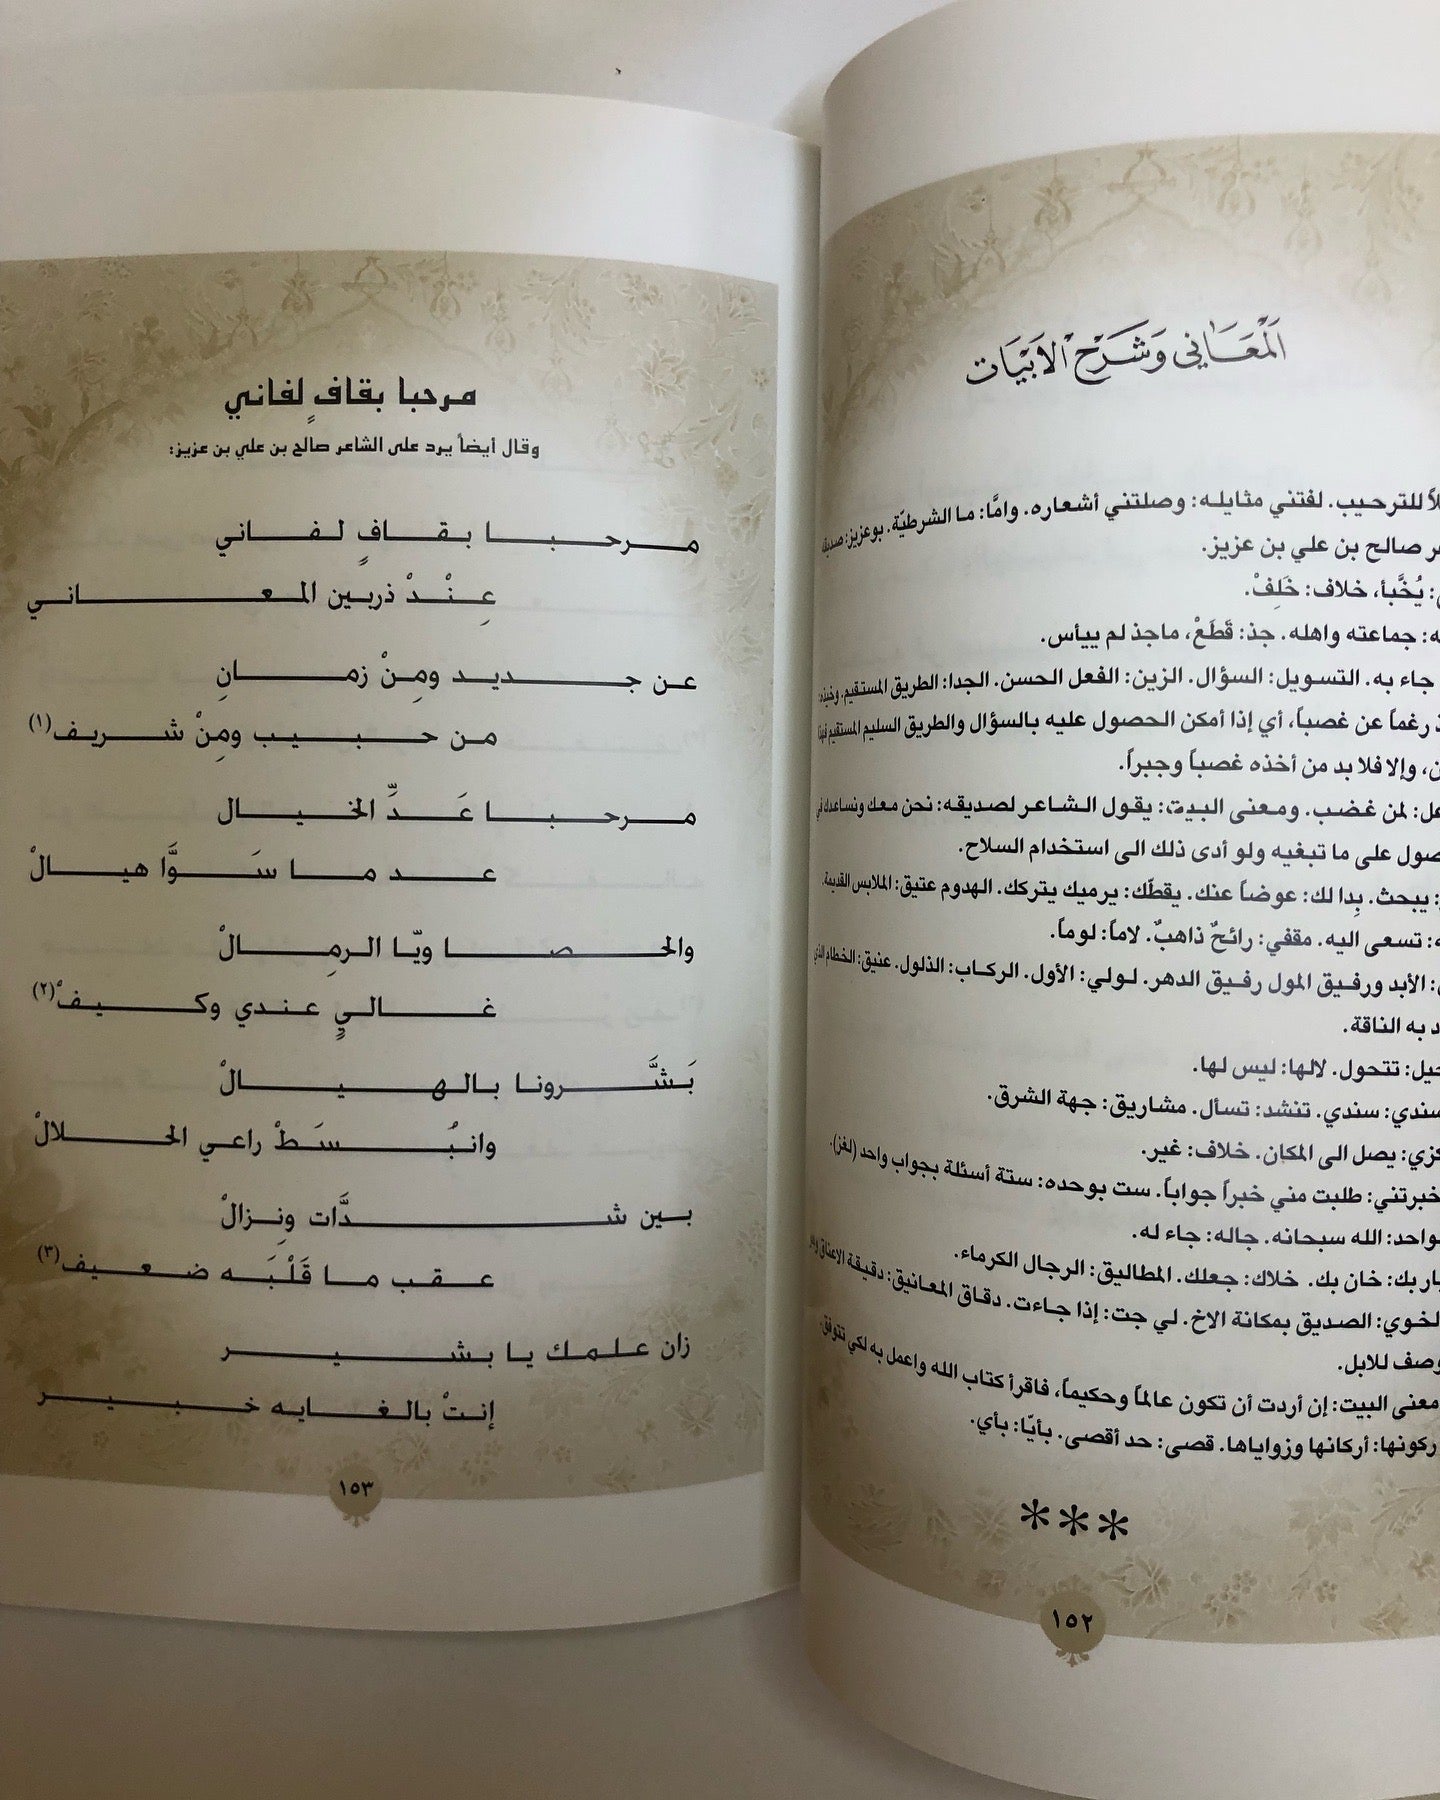 المعاني وشرح الأبيات
للترحيب. لفتني مثايله: وصلتني أشعاره. وامَّا: ما الشرطيّة. بوعزيز: صديقه
صالح بن علي بن عزيز.
يُخَّبأ، خلاف: خَلِفْ.
جماعته واهله. جذ: قَطَعْ، ماجذ لم ييأس.
جاء به. التسويل: السؤال. الزين: الفعل الحسن. الجدا: الطريق المستقيم.
رغماً عن غصباً، أي إذا أمكن الحصول عليه بالسؤال والطريق السليم المستقيم
وإلا فلا بد من أخذه غصباً وجبراً.
لمن غضب. ومعنى البيت: يقول الشاعر لصديقه: نحن معك ونساعدك في
على ما تبغيه ولو أدى ذلك الى استخدام السلاح.
يبحث. بِدا لك: عوضاً عنك. يقطّك: يرميك يتركك. الهدوم عتيق: الملابس القديمة.
تسعى اليه. مقفي: رائحٌ ذاهبٌ. لاماً: لوماً.
الأبد ورفيق المول رفيق الدهر. لولي: الأول. الركاب: الذلول. عنيق: الخطام الذي
به الناقة.
تتحول. لالها: ليس لها.
سندي: سندي. تنشد: تسأل. مشاريق: جهة الشرق.
يصل الى المكان. خلاف: غير.
خبرتني: طلبت مني خبراً جواباً. ست بوحده: ستة أسئلة بجواب واحد (لغز).
الله سبحانه. جاله: جاء له.
بار بك: خان بك. خلاك: جعلك. المطاليق: الرجال الكرماء.
لخوي: الصديق بمكانة الاخ. لي جت: إذا جاءت. دقاق المعانيق: دقيقة الاعناق
وصف للابل.
معنى البيت: إن أردت أن تكون عالماً وحكيماً، فاقرأ كتاب الله واعمل به لكي تتوفق.
ركونها: أركانها وزواياها. قصى: حد أقصى. بأيّا: بأي.
***
١٥٢
مرحبا بقافٍ لفاني
وقال أيضاً يرد على الشاعر صالح بن علي بن عزيز:
مرحبا بقافٍ لفاني
عِنْدْ ذربين المعاني
عن جديد ومِنْ زمانِ
من حبيب ومِنْ شريف(١)
مرحبا عَدِّ الخيال
عد ما سَوَّا هيالْ
والحصا ويّا الرمِالْ
غالي عندي وكيفْ(٢)
بَشَّرونا بالهيالْ
وانبُسَطْ راعي الحلالْ
بين شدَّات ونِزالْ
عقب ما قَلْبَه ضعيف(٣)
زان علمك يا بشير
إنتْ بالغايه خبير
١٥٣